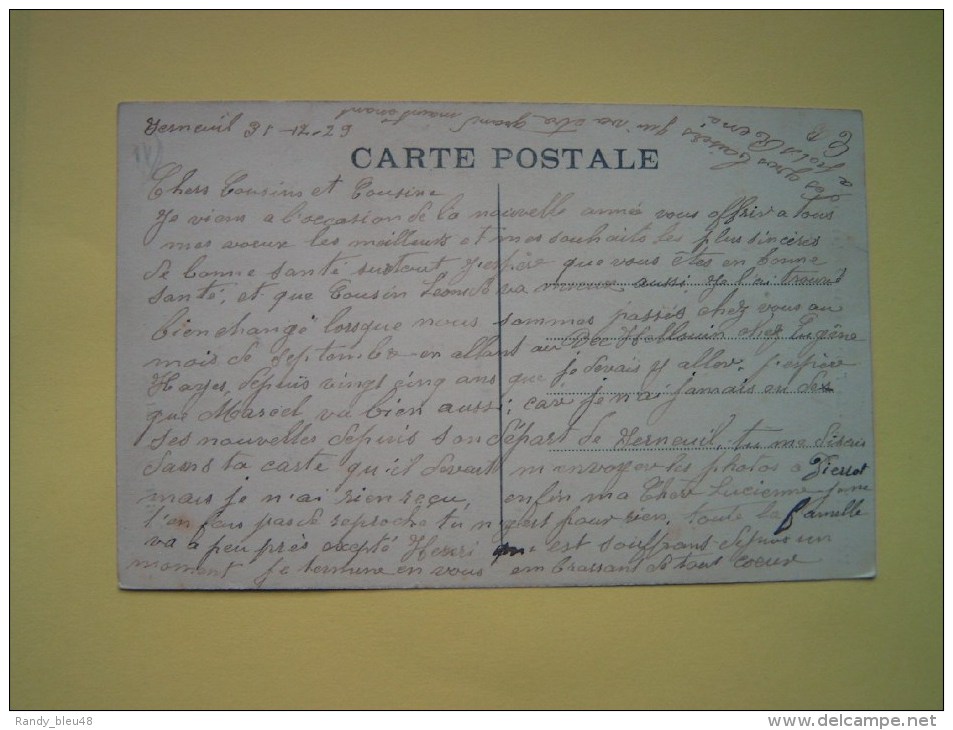 Verneuil 31-12-29
CARTE POSTALE
Chers Cousins et Cousine
Je viens a l'occasion de la nouvelle année vous offrir a tous
mes voeux les meilleurs et mes souhaits les plus sincères
de bonne santé surtout, j'espère que vous êtes en bonne
santé, et que Cousin va mieux aussi je l'ai trouvé
bien changé lorsque nous sommes passés chez vous au
mois de septembre en allant au chez Eugène
Hayes, depuis vingt cinq ans que je devais y aller, j'espère
que Marcel va bien aussi, car je n'ai jamais eu de
ses nouvelles depuis son départ de Verneuil, tu me disais
dans ta carte qu'il devait m'envoyer les photos a Pierrot
mais je n'ai rien reçu, enfin ma Chère Lucienne je ne
t'en fais pas de reproche tu n'y es pour rien, toute la famille
va a peu près excepté Henri qui est souffrant depuis un
moment je termine en vous embrassant de tout coeur
gros baisers qui va être grand maintenant
Randy_bleu48
www.delcampe.net